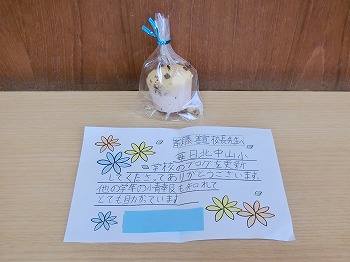 校長先生へ
毎日北中山小
学校のブログを更新
してくださってありがとうございます
他の学年の小情報も知れて
とても助かっています